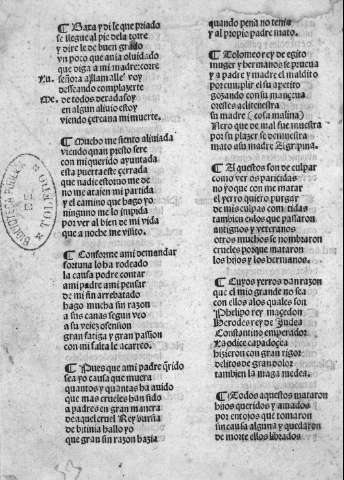 ¶ Baxa y di le que priado
se llegue al pie dela torre
y dire le de buen grado
vn poco que ania oluidado
que diga a mi madre corre
Lu. señora a llamalle voy
desseando complazerte
Me. de todos beradasoy
en algun aliuio estoy
viendo cercana mi muerte.
¶ Mucho me siento aliuiada
viendo quan presto sere
con mi querido ayuntada
esta puerta este cerrada
que nadie estoruo me de
no me atajen mi partida
y el camino que hago yo
ninguno me lo impida
por ver al bien de mi vida
que a noche me visito.
¶ Conforme a mi demandar
fortuna lo ha rodeado
la causa podre contar
a mi padre a mi pensar
de mi fin arrebatado
hago mucha sin razon
a sus canas segun veo
a su vejez ofension
gran fatiga y gran passion
con mi falta le acarreo.
¶ Pues que a mi padre q̃rido
sea yo causa que muera
quantos y quantas ha auido
que mas crueles han sido
a padres en gran manera
de aquel cruel Rey bursia
de britinia hallo yo
que gran sin razon hazia
quando pena no tenia
y al propio padre mato.
¶ Tolomeo rey de egito
muger y hermanos se prueua
y a padre y madre el maldito
por cumplir el su apetito
gozando con su manceua
orestes a clitenestra
su madre ( cosa malina)
Nero que de mal fue muestra
por su plazer se demuestra
mato a su madre Agripina.
¶ Aquestos son de culpar
como ver os parecidas
no yo que con me matar
el yerro quiero purgar
de mis culpas cometidas
tambien en los que passaron
antignos y veteranos
otros muchos se nombraron
crueles porque mataron
los hijos y los hermanos.
¶ Cuyos yerros dan razon
que el mio grande no sea
con ellos a los quales son
Phelipo rey macedon
Herodes rey de Judea
Constantino emperador
Laodice capadocea
hizieron con gran rigor
delitos de gran dolor
tambien la maga medea.
¶ Todos aquestos mataron
hijos queridos y amados
por enojos que tomaron
sin causa alguna y quedaron
de morte ellos librados